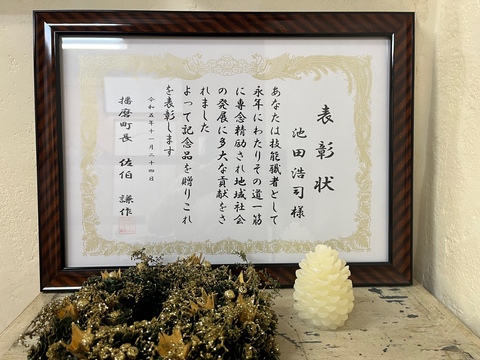 表彰状
池田浩司様
あなたは技能職者として
永年にわたりその道一筋
に専念精励され地域社会
の発展に多大な貢献をさ
れました
よって記念品を贈りこれ
を表彰します
令和五年十一月二十四日
播磨町長 佐伯 謙作